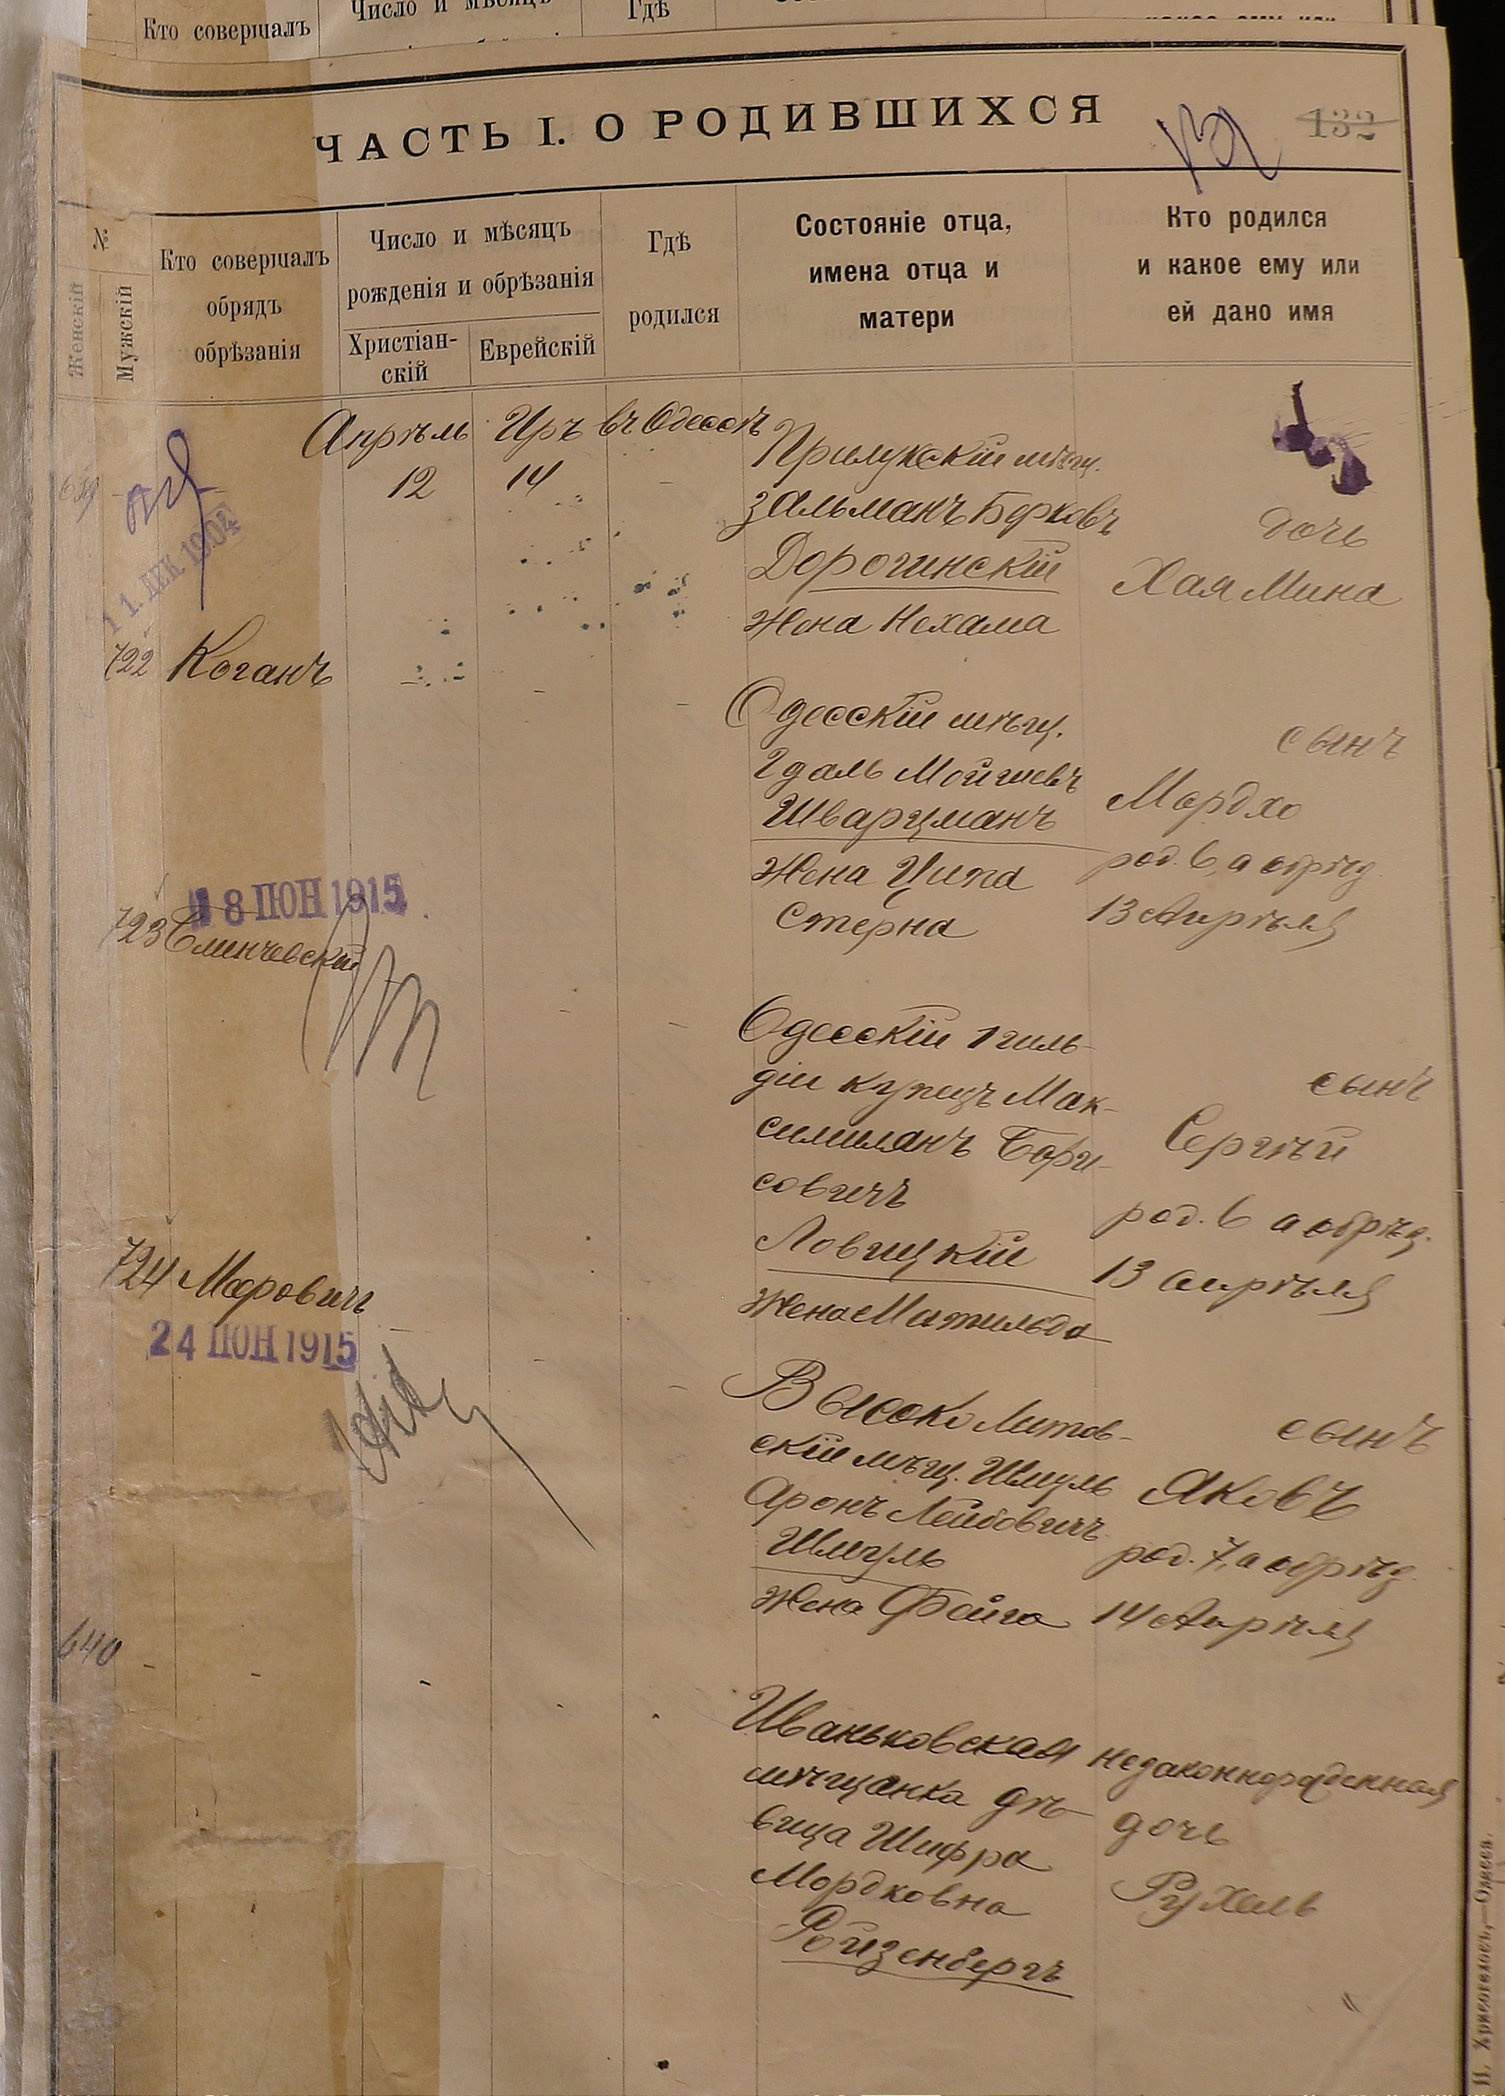 Кто совершалъ
Число и мѣсяцъ
Гдѣ
ЧАСТЬ I. О РОДИВШИХСЯ
132
№
Женскій
Мужскій
Кто совершалъ
обрядъ
обрѣзанія
Число и мѣсяцъ
рожденія и обрѣзанія
Христіан-
скій
Еврейскій
Гдѣ
родился
Состояніе отца,
имена отца и
матери
Кто родился
и какое ему или
ей дано имя
Апрѣль Иръ въ Одессѣ
12 14
639
11. ДЕК 1904
Прилукскій мѣщ.
Зальманъ Берковъ
Дорогинскій
жена Нехама
дочь
Хая Мина
722 Коганъ
Одесскій мѣщ.
Гдаль Мойшевъ
Шварцманъ
жена Ципа
Стерна
сынъ
Мордхо
род. 6, а обрѣз.
13 Апрѣля
18 ІЮН 1915
723
Одесскій 1 гиль-
діи купецъ Мак-
симилянъ Бори-
совичъ
Ловицкій
жена Матильда
сынъ
Сергѣй
род. 6 а обрѣз.
13 апрѣля
724 Меровичъ
24 ІЮН 1915
Высоко Литов-
скій мѣщ. Шмуль
Аронъ Лейбовичъ
Шмуль
жена Фейга
сынъ
Яковъ
род. 7, а обрѣз.
14 Апрѣля
640
Иваньковская
мѣщанка дѣ-
вица Шифра
Мордковна
Ройзенбергъ
незаконнорожденная
дочь
Рухель
П. Хрисогелосъ,—Одесса.